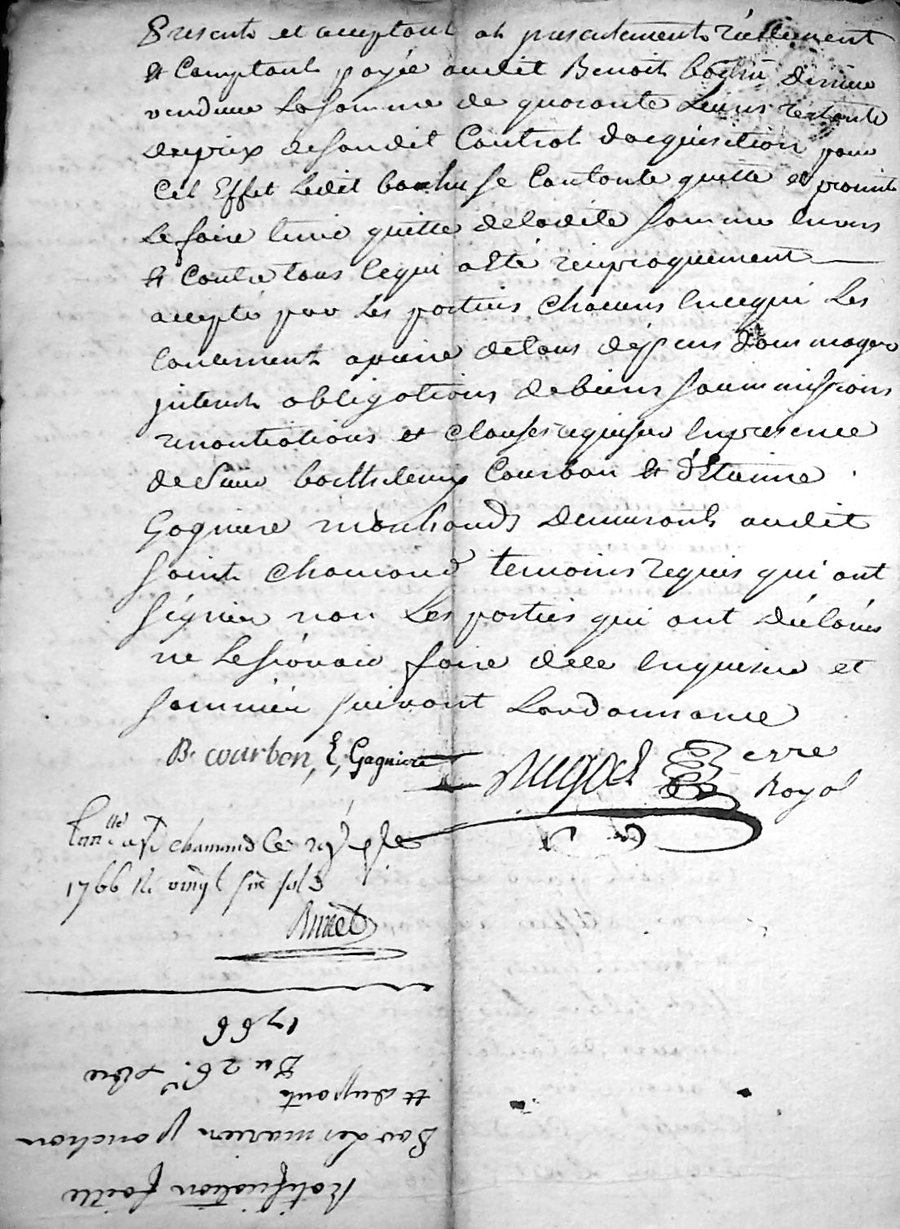 Presente et acceptant at presentement réellement
et Comptant payée audit Benoit bachu dernier
vendeur La somme de quarante Livres restante
du prix desondit Contrat dacquisition pour
Cet Effet Ledit bachu se Contente quitte et promet
Le faire tenir quitte deladite somme Envers
et Contre tous Cequi a Eté reciproquement
accepté par Les parties Chacuns Encequi Les
Concernent apeine detous dépens dommages
interets obligations debiens soummissions
renontiations et Clauses requises Enpresence
de Sieur barthelemy Courbon et d'Etienne
Gagniere marchands demeurants audit
saint chamond temoins requis qui ont
signés non Les parties qui ont déclarés
ne Lesçavoir faire dece Enquises et
sommées suivant Lordonnance
B. courbon, E, Gagniere
erre
Royal
chamond Le
1766 sols
1766
Du 26. xbre
et dupont
par les mariés ponchon
Ratification faitte